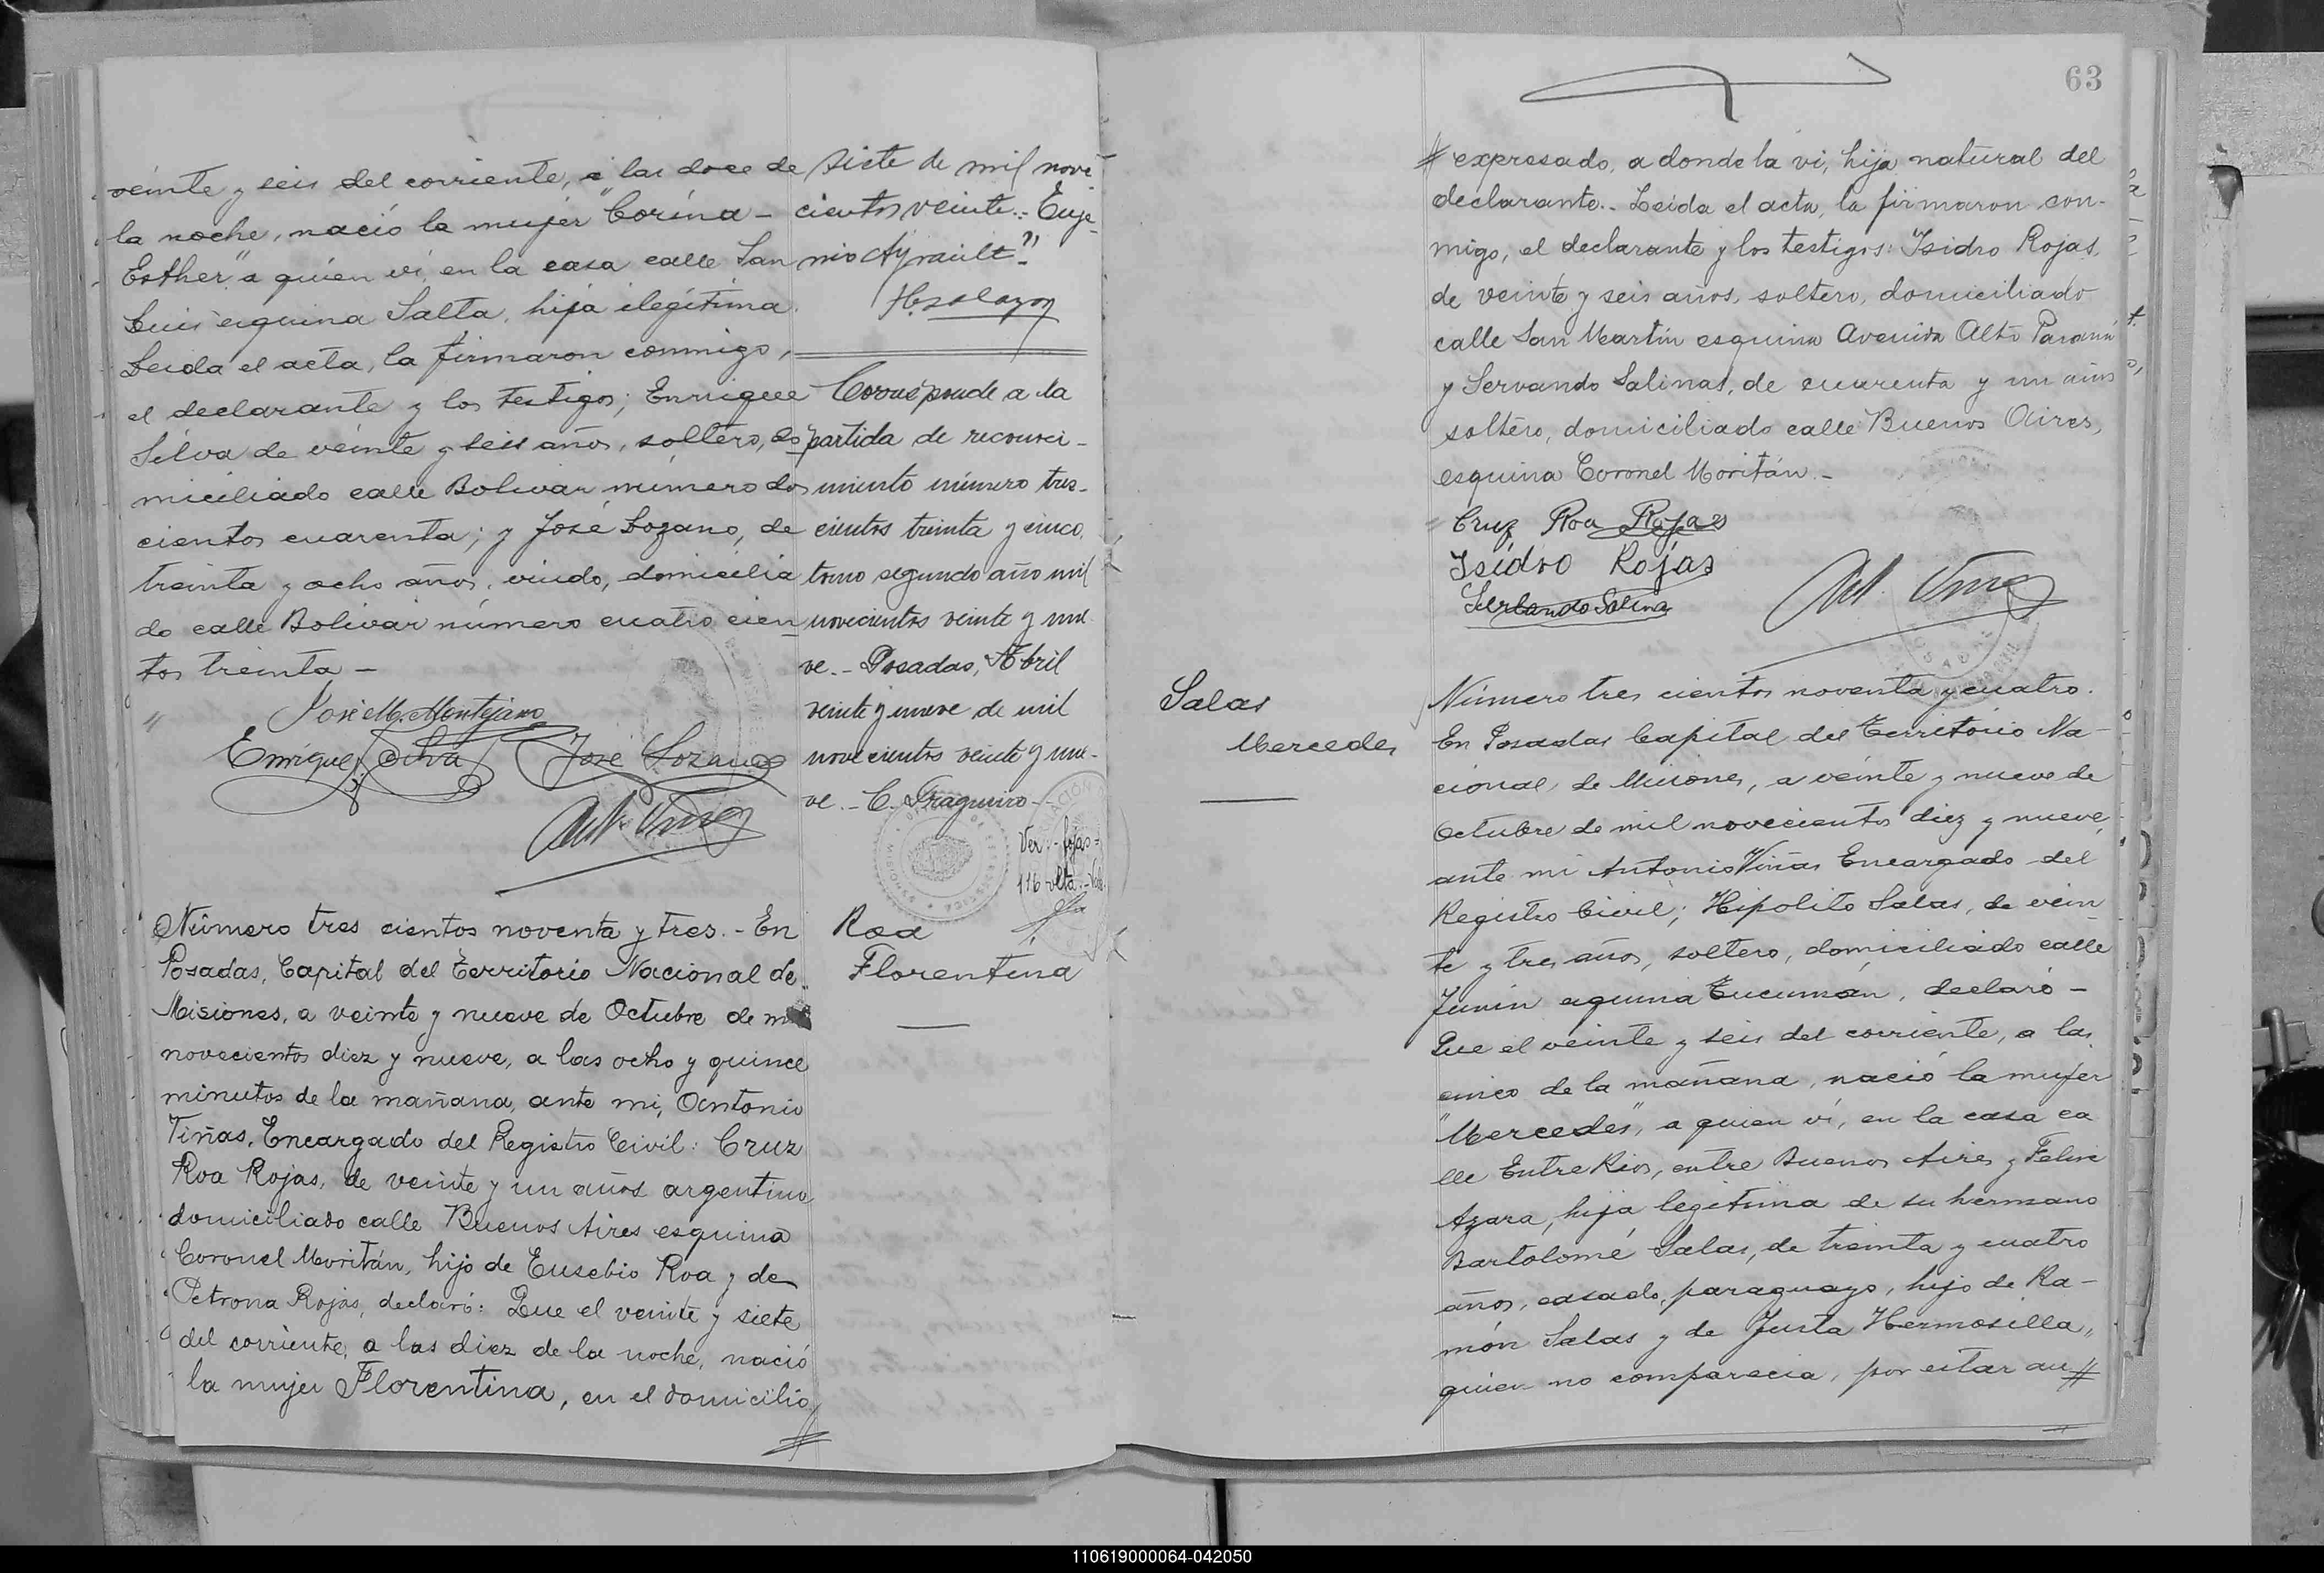 veinte y seis del corriente, a las doce de
la noche, nació la mujer "Corina-
Esther" a quien ví, en la casa calle San
Luis esquina Salta, hija ilegítima.
Leida el acta, la firmaron conmigo,
el declarante y los testigos; Enrique
Silva de veinte y seis años, soltero, do
miciliado calle Bolivar número dos
cientos cuarenta; y José Lozano, de
treinta y ocho años, viudo, domicilia
do calle Bolivar número cuatro cien
tos treinta -
José M. Montejano
Enrique Silva José Lozano
Ant. Viñas
siete de mil nove
cientos veinte.- Euge-
nio Ayrault"
Corresponde a la
partida de reconoci-
miento número tres-
cientos treinta y cinco,
tomo segundo año mil
novecientos veinte y nue
ve.- Posadas, Abril
veinte y nueve de mil
novecientos veinte y nue-
ve.- C. Fraguiro-
Ver - fojas =
116 vlta.-
Número tres cientos noventa y tres.- En
Posadas, Capital del Territorio Nacional de
Misiones, a veinte y nueve de Octubre de mil
novecientos diez y nueve, a las ocho y quince
minutos de la mañana, ante mi, Antonio
Viñas, Encargado del Registro Civil: Cruz
Roa Rojas, de veinte y un años argentino
domiciliado calle Buenos Aires esquina
Coronel Moritán, hijo de Eusebio Roa y de
Petrona Rojas, declaró: Que el veinte y siete
del corriente, a las diez de la noche, nació
la mujer Florentina, en el domicilio
#
Roa
Florentina
63
# expresado, a donde la vi, hija natural del
declarante.- Leida el acta, la firmaron con-
migo, el declarante y los testigos: Isidro Rojas,
de veinte y seis años, soltero, domiciliado
calle San Martín esquina Avenida Alto Paraná
y Servando Salinas, de cuarenta y un años
soltero, domiciliado calle Buenos Aires,
esquina Coronel Moritán.-
Cruz Roa Rojas
Isidro Rojas
Serbando Salina
Ant. Viñas
Salas
Mercedes
Número tres cientos noventa y cuatro.
En Posadas Capital del Territorio Na-
cional de Misiones, a veinte y nueve de
Octubre de mil novecientos diez y nueve,
ante mi Antonio Viñas Encargado del
Registro Civil; Hipolito Salas, de vein
te y tres años, soltero, domiciliado calle
Junín esquina Tucumán, declaró -
Que el veinte y seis del corriente, a las
cinco de la mañana, nació la mujer
"Mercedes", a quien ví, en la casa ca
lle Entre Rios, entre Buenos Aires y Felix
Azara, hija legítima de su hermano
Bartolomé Salas, de treinta y cuatro
años, casado, paraguayo, hijo de Ra-
món Salas y de Justa Hermosilla,
quien no comparecia, por estar au#
110619000064-042050